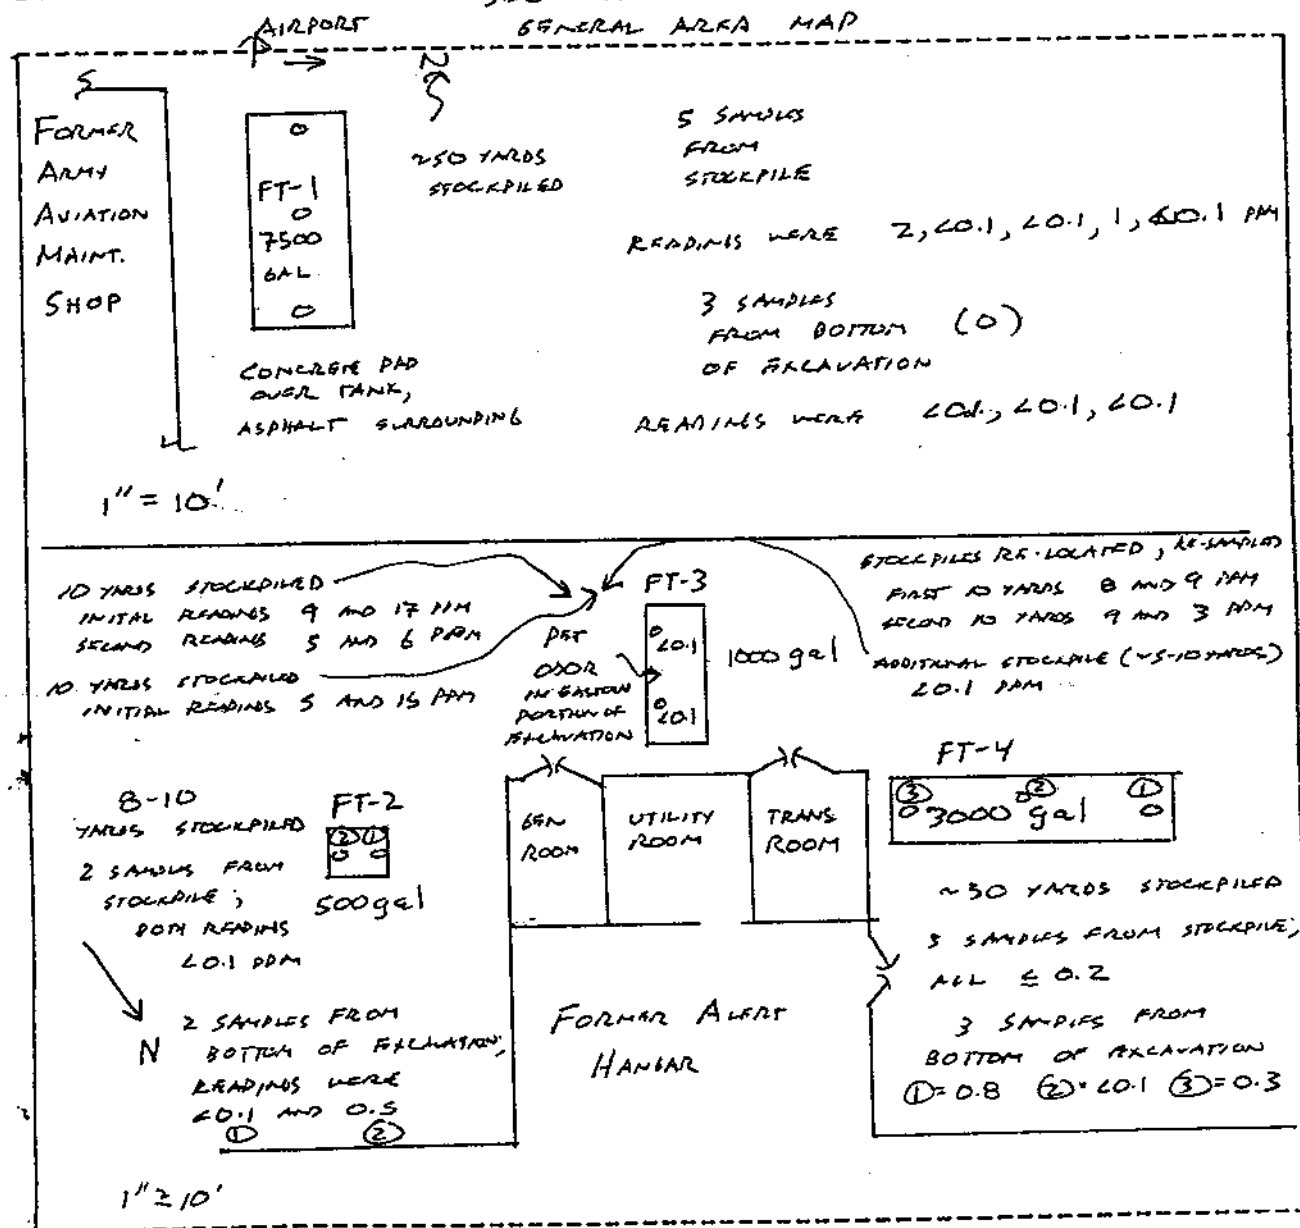 AIRPORT
GENERAL AREA MAP
FORMER
ARMY
AVIATION
MAINT.
SHOP
FT-1
7500
GAL.
250 YARDS
STOCKPILED
5 SAMPLES
FROM
STOCKPILE
READINGS WERE 2, <0.1, <0.1, 1, <0.1 PPM
3 SAMPLES
FROM BOTTOM (O)
OF EXCAVATION
READINGS WERE <0.1, <0.1, <0.1
CONCRETE PAD
OVER TANK,
ASPHALT SURROUNDING
1" = 10'
10 YARDS STOCKPILED
INITAL READINGS 9 AND 17 PPM
SECOND READINGS 5 AND 6 PPM
10 YARDS STOCKPILED
INITIAL READINGS 5 AND 15 PPM
PET
ODOR
IN EASTERN
PORTION OF
EXCAVATION
FT-3
<0.1
<0.1
1000 gal
STOCKPILES RE-LOCATED, RE-SAMPLED
FIRST 10 YARDS 8 AND 9 PPM
SECOND 10 YARDS 9 AND 3 PPM
ADDITIONAL STOCKPILE (~5-10 YARDS)
<0.1 PPM
8-10
YARDS STOCKPILED
2 SAMPLES FROM
STOCKPILE;
BOTH READINGS
<0.1 PPM
FT-2
② ①
500 gal
N
2 SAMPLES FROM
BOTTOM OF EXCAVATION;
READINGS WERE
<0.1 AND 0.5
① ②
GEN
ROOM
UTILITY
ROOM
TRANS
ROOM
FORMER ALERT
HANGAR
FT-4
③ ② ①
3000 gal
~30 YARDS STOCKPILED
3 SAMPLES FROM STOCKPILE,
ALL ≤ 0.2
3 SAMPLES FROM
BOTTOM OF EXCAVATION
①= 0.8 ②= <0.1 ③= 0.3
1" ≅ 10'